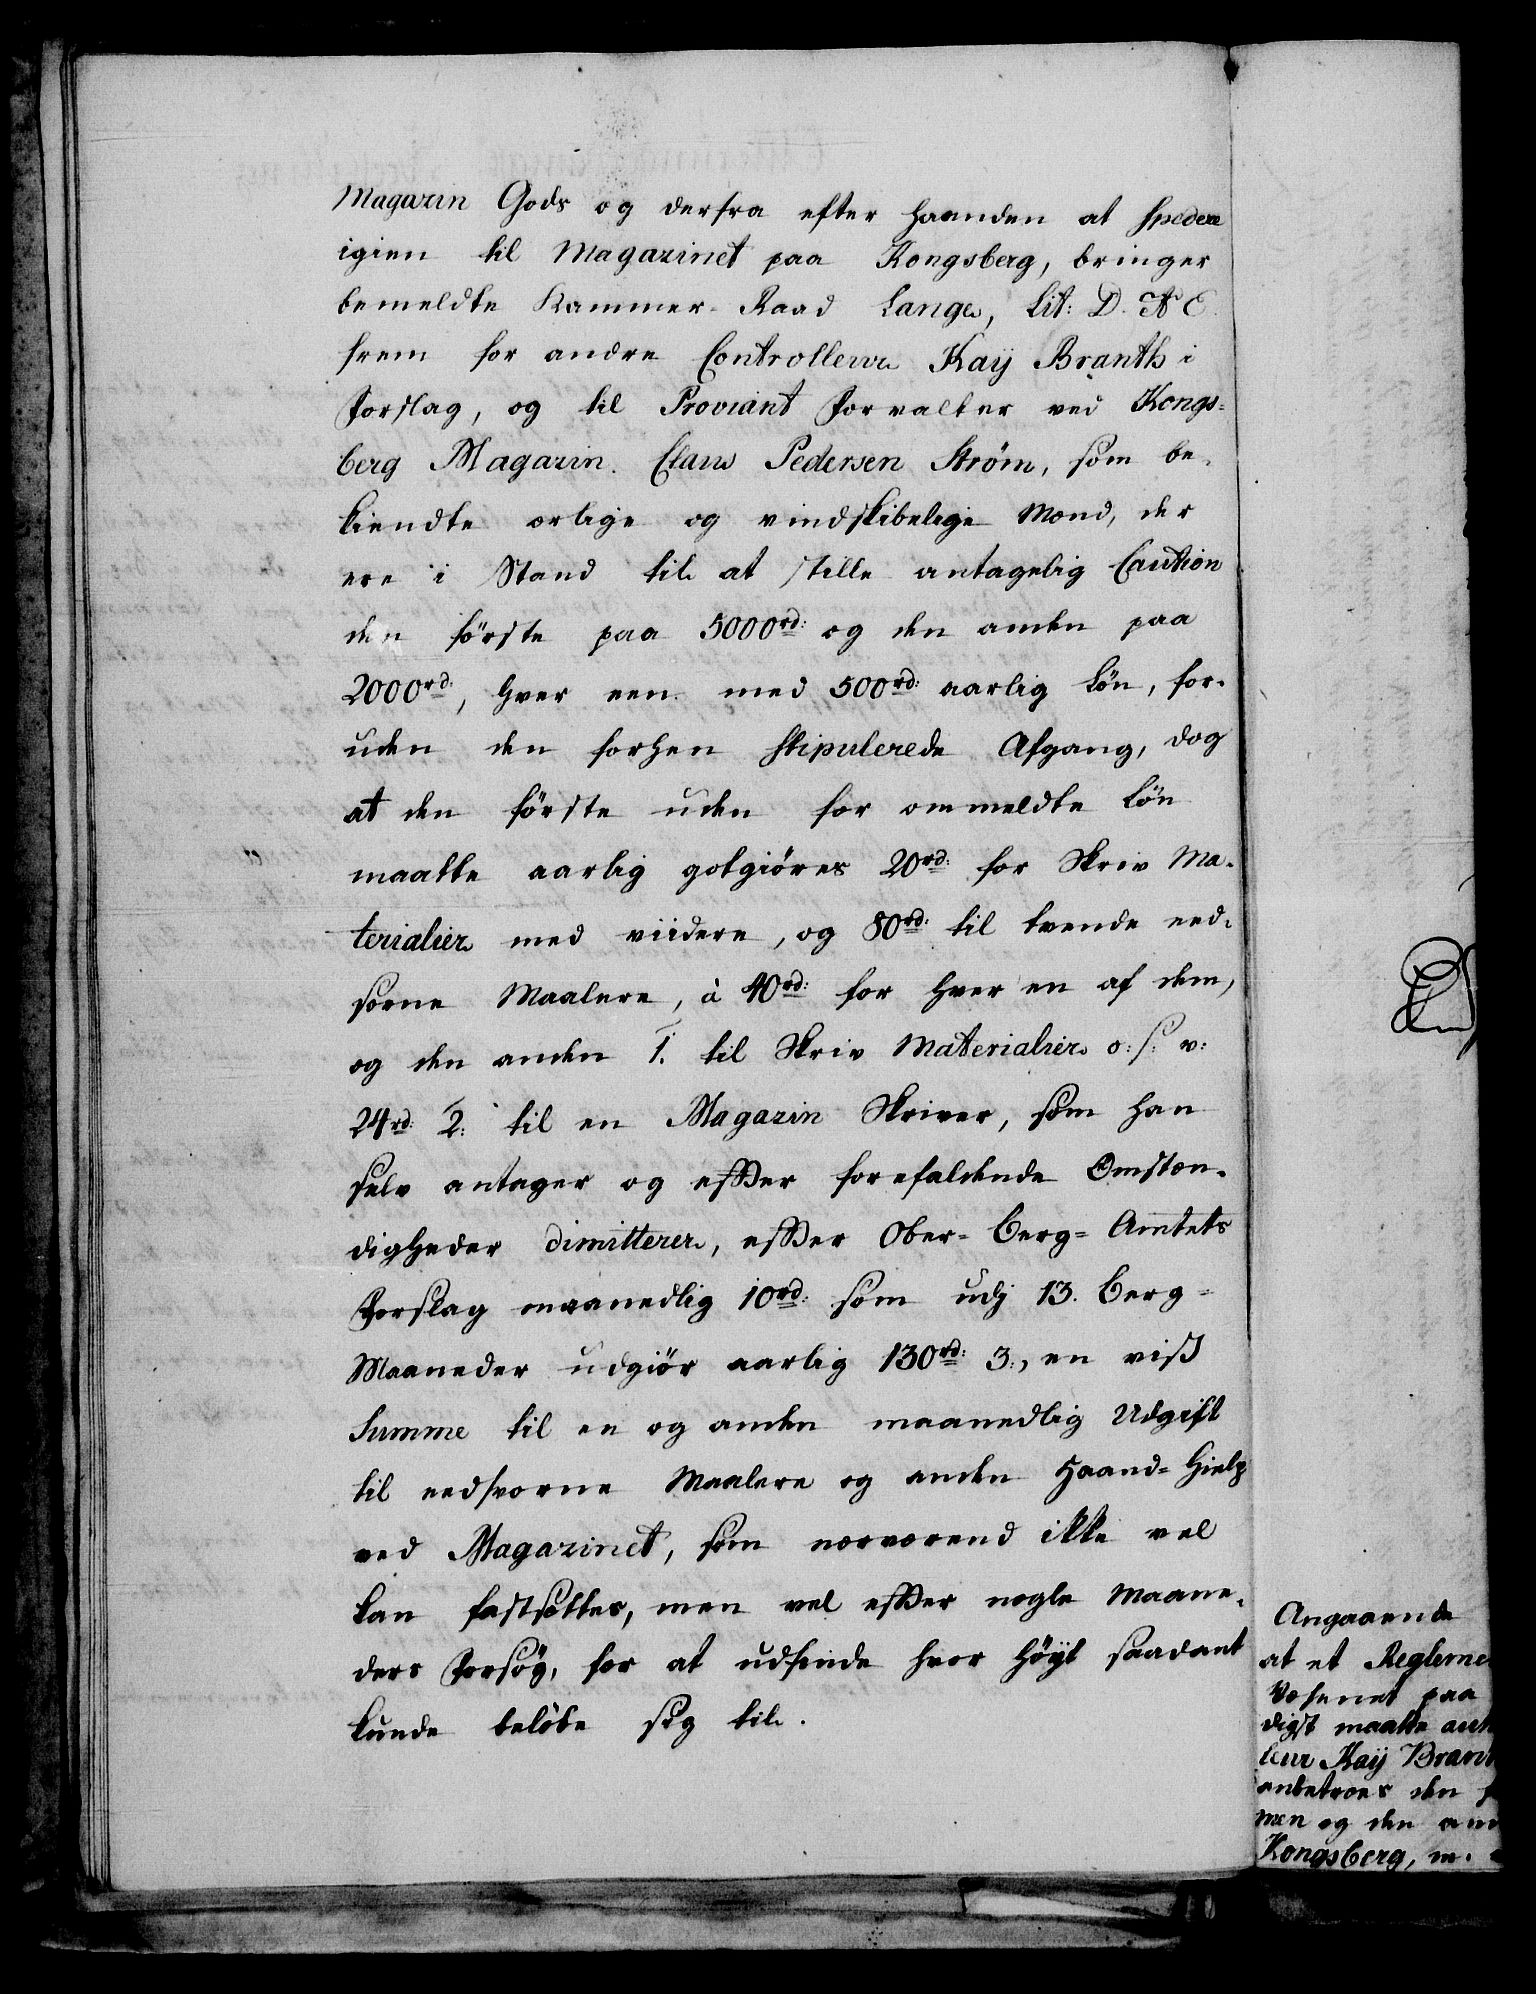 Magazin Gods og derfra efter haanden at spedere
igien til Magazinet paa Kongsberg, bringer
bemeldte Kammer-Raad Lange, Lit: D. &
frem for andre Controlleur Kaÿ Branth i
Forslag, og til Proviant Forvalter ved Kongs=
berg Magazin Claus Pedersen Strøm, som be-
kiendte ærlige og vindskibelige Mænd, der
ere i Stand til at stille antagelig Caution
den første paa 5000rd: og den anden paa
2000rd:, hver een med 500rd: aarlig Løn, for-
uden den forhen stipulerede Afgang, dog
at den første uden for ommeldte Løn
maatte aarlig gotgiøres 20rd: for Skriv Ma-
terialier med viidere, og 80rd: til tvende eed-
sorne Maalere, à 40rd: for hver en af dem,
og den anden 1. til Skriv Materialier o: s: v:
24rd: 2: til en Magazin Skriver, som han
selv antager og efter forefaldende Omstæn-
digheder dimitterer, efter Ober-Berg-Amtets
Forslag maanedlig 10rd: som udj 13. Berg-
Maaneder udgiør aarlig 130rd: 3:, en viß
Summe til en og anden maanedlig Udgift
til eedsvorne Maalere og anden Haand-Hielp
ved Magazinet, som nærværend ikke vel
kan fastsættes, men vel efter nogle Maane-
ders Forsøg, for at udfinde hvor høÿt saadant
kunde beløbe sig til.
Angaaende
at et Regleme
Væsenet paa
digst maatte
leur Kaÿ Bran
anbetroes den
men og den an
Kongsberg, m.